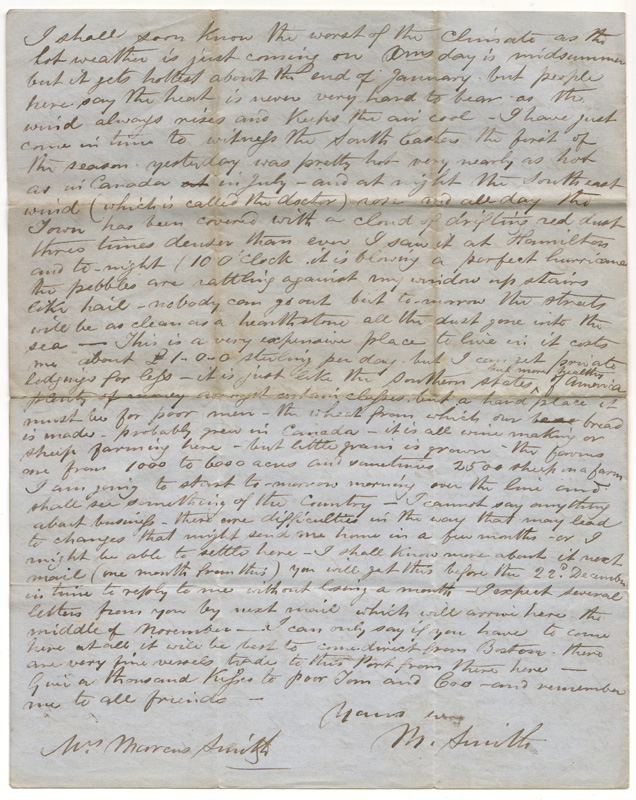 I shall soon know the worst of the climate as the
hot weather is just coming on Xmas day is midsummer
but it gets hottest about the end of January. but people
here say the heat is never very hard to bear as the
wind always rises and keeps the air cool - I have just
come in time to witness the South Easter the first of
the season. yesterday was pretty hot very nearly as hot
as in Canada in July - and at night the South east
wind (which is called the doctor) rose and all day the
Town has been covered with a cloud of drifting red dust
three times denser than ever I saw it at Hamilton
and to-night (10 O'Clock it is blowing a perfect hurricane
the pebbles are rattling against my window up stairs
like hail - nobody can go out but to-morrow the streets
will be as clean as a hearthstone all the dust gone into the
sea — This is a very expensive place to live in it costs
me about £1-0-0 sterling per day. but I can get private
lodgings for less - it is just like the Southern states of America
but more healthy
plenty of money amongst certain classes. but a hard place it
must be for poor men - the wheat from which our bread
is made - probably grew in Canada - it is all wine making or
sheep farming here - but little grain is grown - the farms
are from 1000 to 6000 acres and sometimes 2500 sheep in a farm
I am going to start to-morrow morning over the line and
shall see something of the Country — I cannot say anything
about business. there are difficulties in the way that may lead
to changes that might send me home in a few months - or I
might be able to settle here - I shall know more about it next
mail (one month from this) you will get this before the 22d December
in time to reply to me without losing a month - I expect several
letters from you by next mail which will arrive here the
middle of November — I can only say if you have to come
here at all it will be best to come direct from Boston. there
are very fine vessels trade to this Port from there here —
Give a thousand kisses to poor Tom and Coo - and remember
me to all friends —
Yours ever
M. Smith
Mrs Marcus Smith